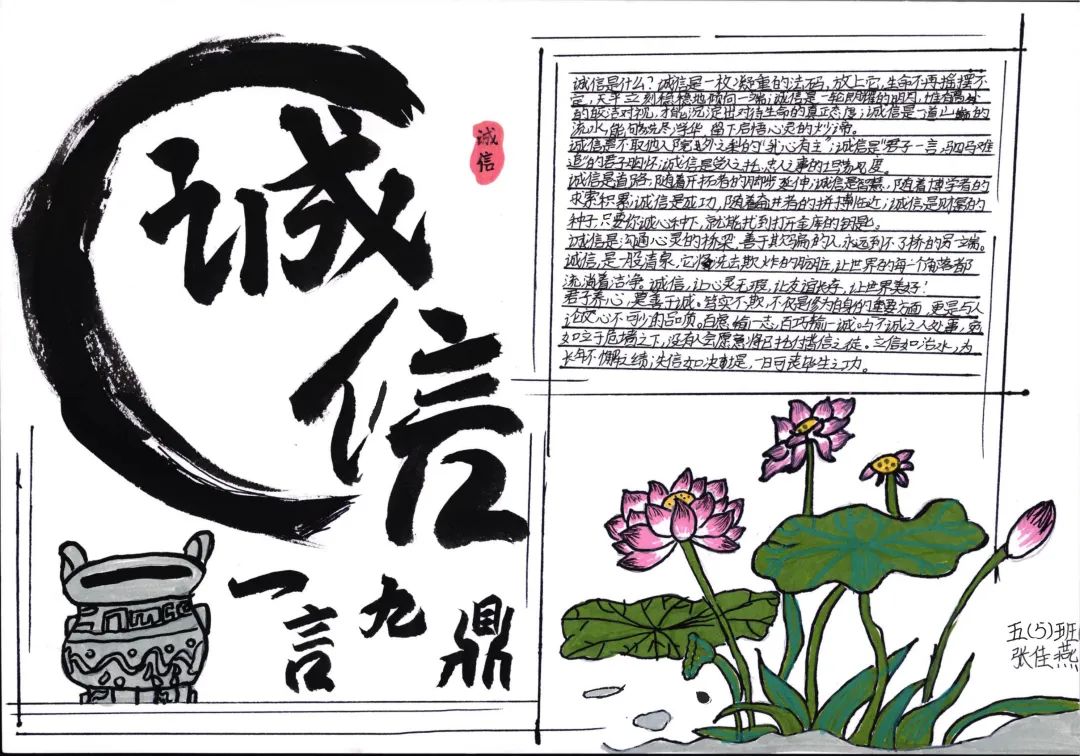 诚信
诚信
一言九鼎
诚信是什么？诚信是一枚凝重的法码，放上它，生命不再摇摆不
定，天平立刻稳稳地倾向一端；诚信是一轮明耀的明月，惟有
的皎洁对视，才能沉淀出对待生命的真正态度；诚信是一道山巅的
流水，能够洗尽浮华，留下启悟心灵的
诚信是不取他人院里外之梨的“我心有主”；诚信是“君子一言，驷马难
追”的君子胸怀；诚信是受人之托，忠人之事的
诚信是道路，随着开拓者的脚步延伸；诚信是智慧，随着博学者的
求索积累；诚信是成功，随着奋进者的拼搏临近；诚信是财富的
种子，只要你诚心种下，就能找到打开金库的钥匙。
诚信是沟通心灵的桥梁，善于欺骗的人，永远到不了桥的另一端。
诚信，是一股清泉，它将洗去欺炸的肮脏，让世界的每一个角落都
流淌着洁净。诚信，让心灵无瑕，让友谊长存，让世界美好！
君子养心，莫善于诚。笃实不欺，不仅是修为自身的重要方面，更是与人
论交心不可少的品质。百虑输一志，百巧输一诚。与不诚之人处事，宛
如立于危墙之下，没有人会愿意将己托付
长年不懈之绩；失信如决，一日可丧毕生之功。
五(5)班
张佳燕